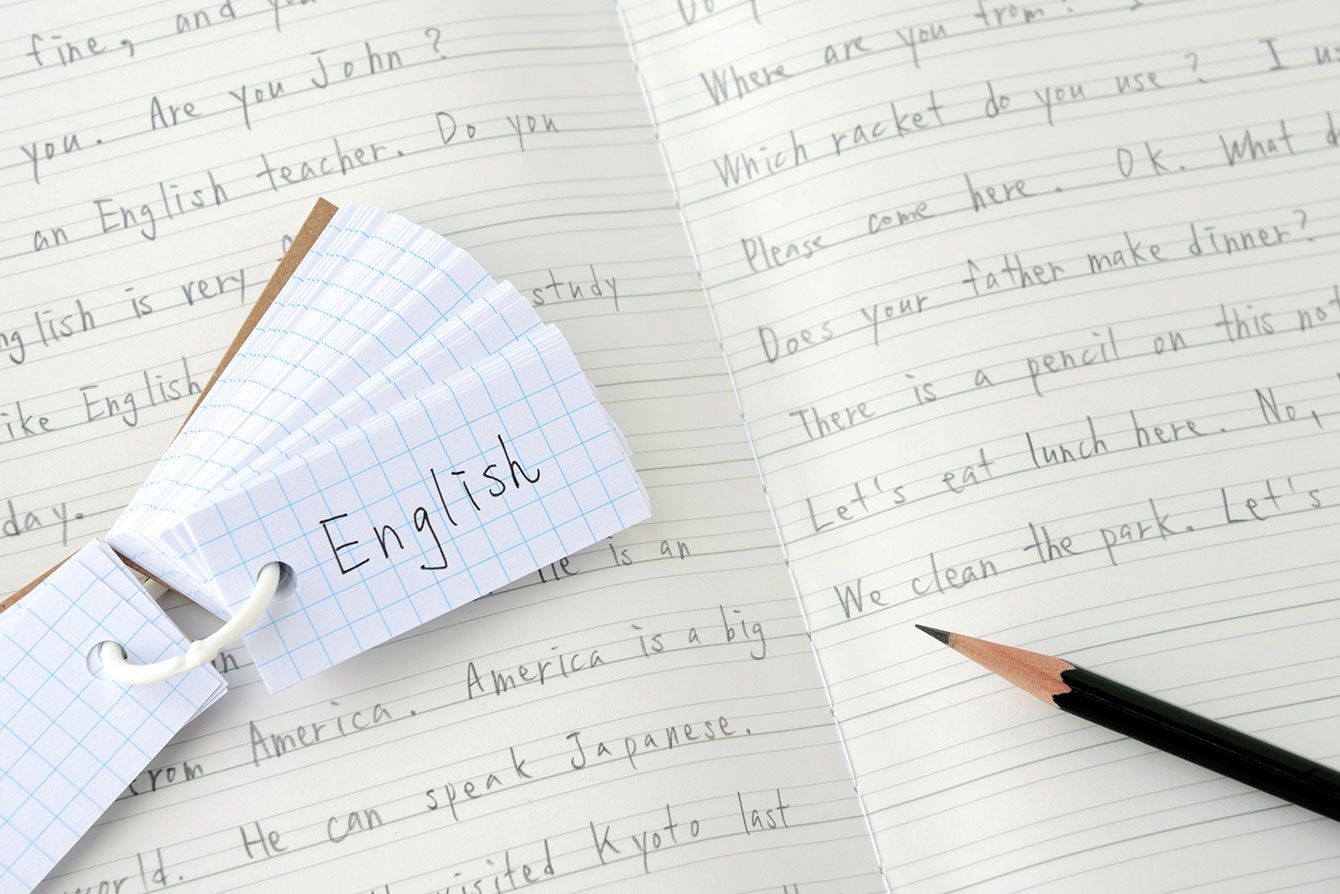 fine, and you
you. Are you John?
an English teacher. Do you
English is very
study
like English
day.
He is an
America is a big
from America.
He can speak Japanese.
world.
visited Kyoto last
English
Do y
Where are you from?
Which racket do you use? I us
Please come here. Ok. What d
Does your father make dinner?
There is a pencil on this not
Let's eat lunch here. No,
We clean the park. Let's